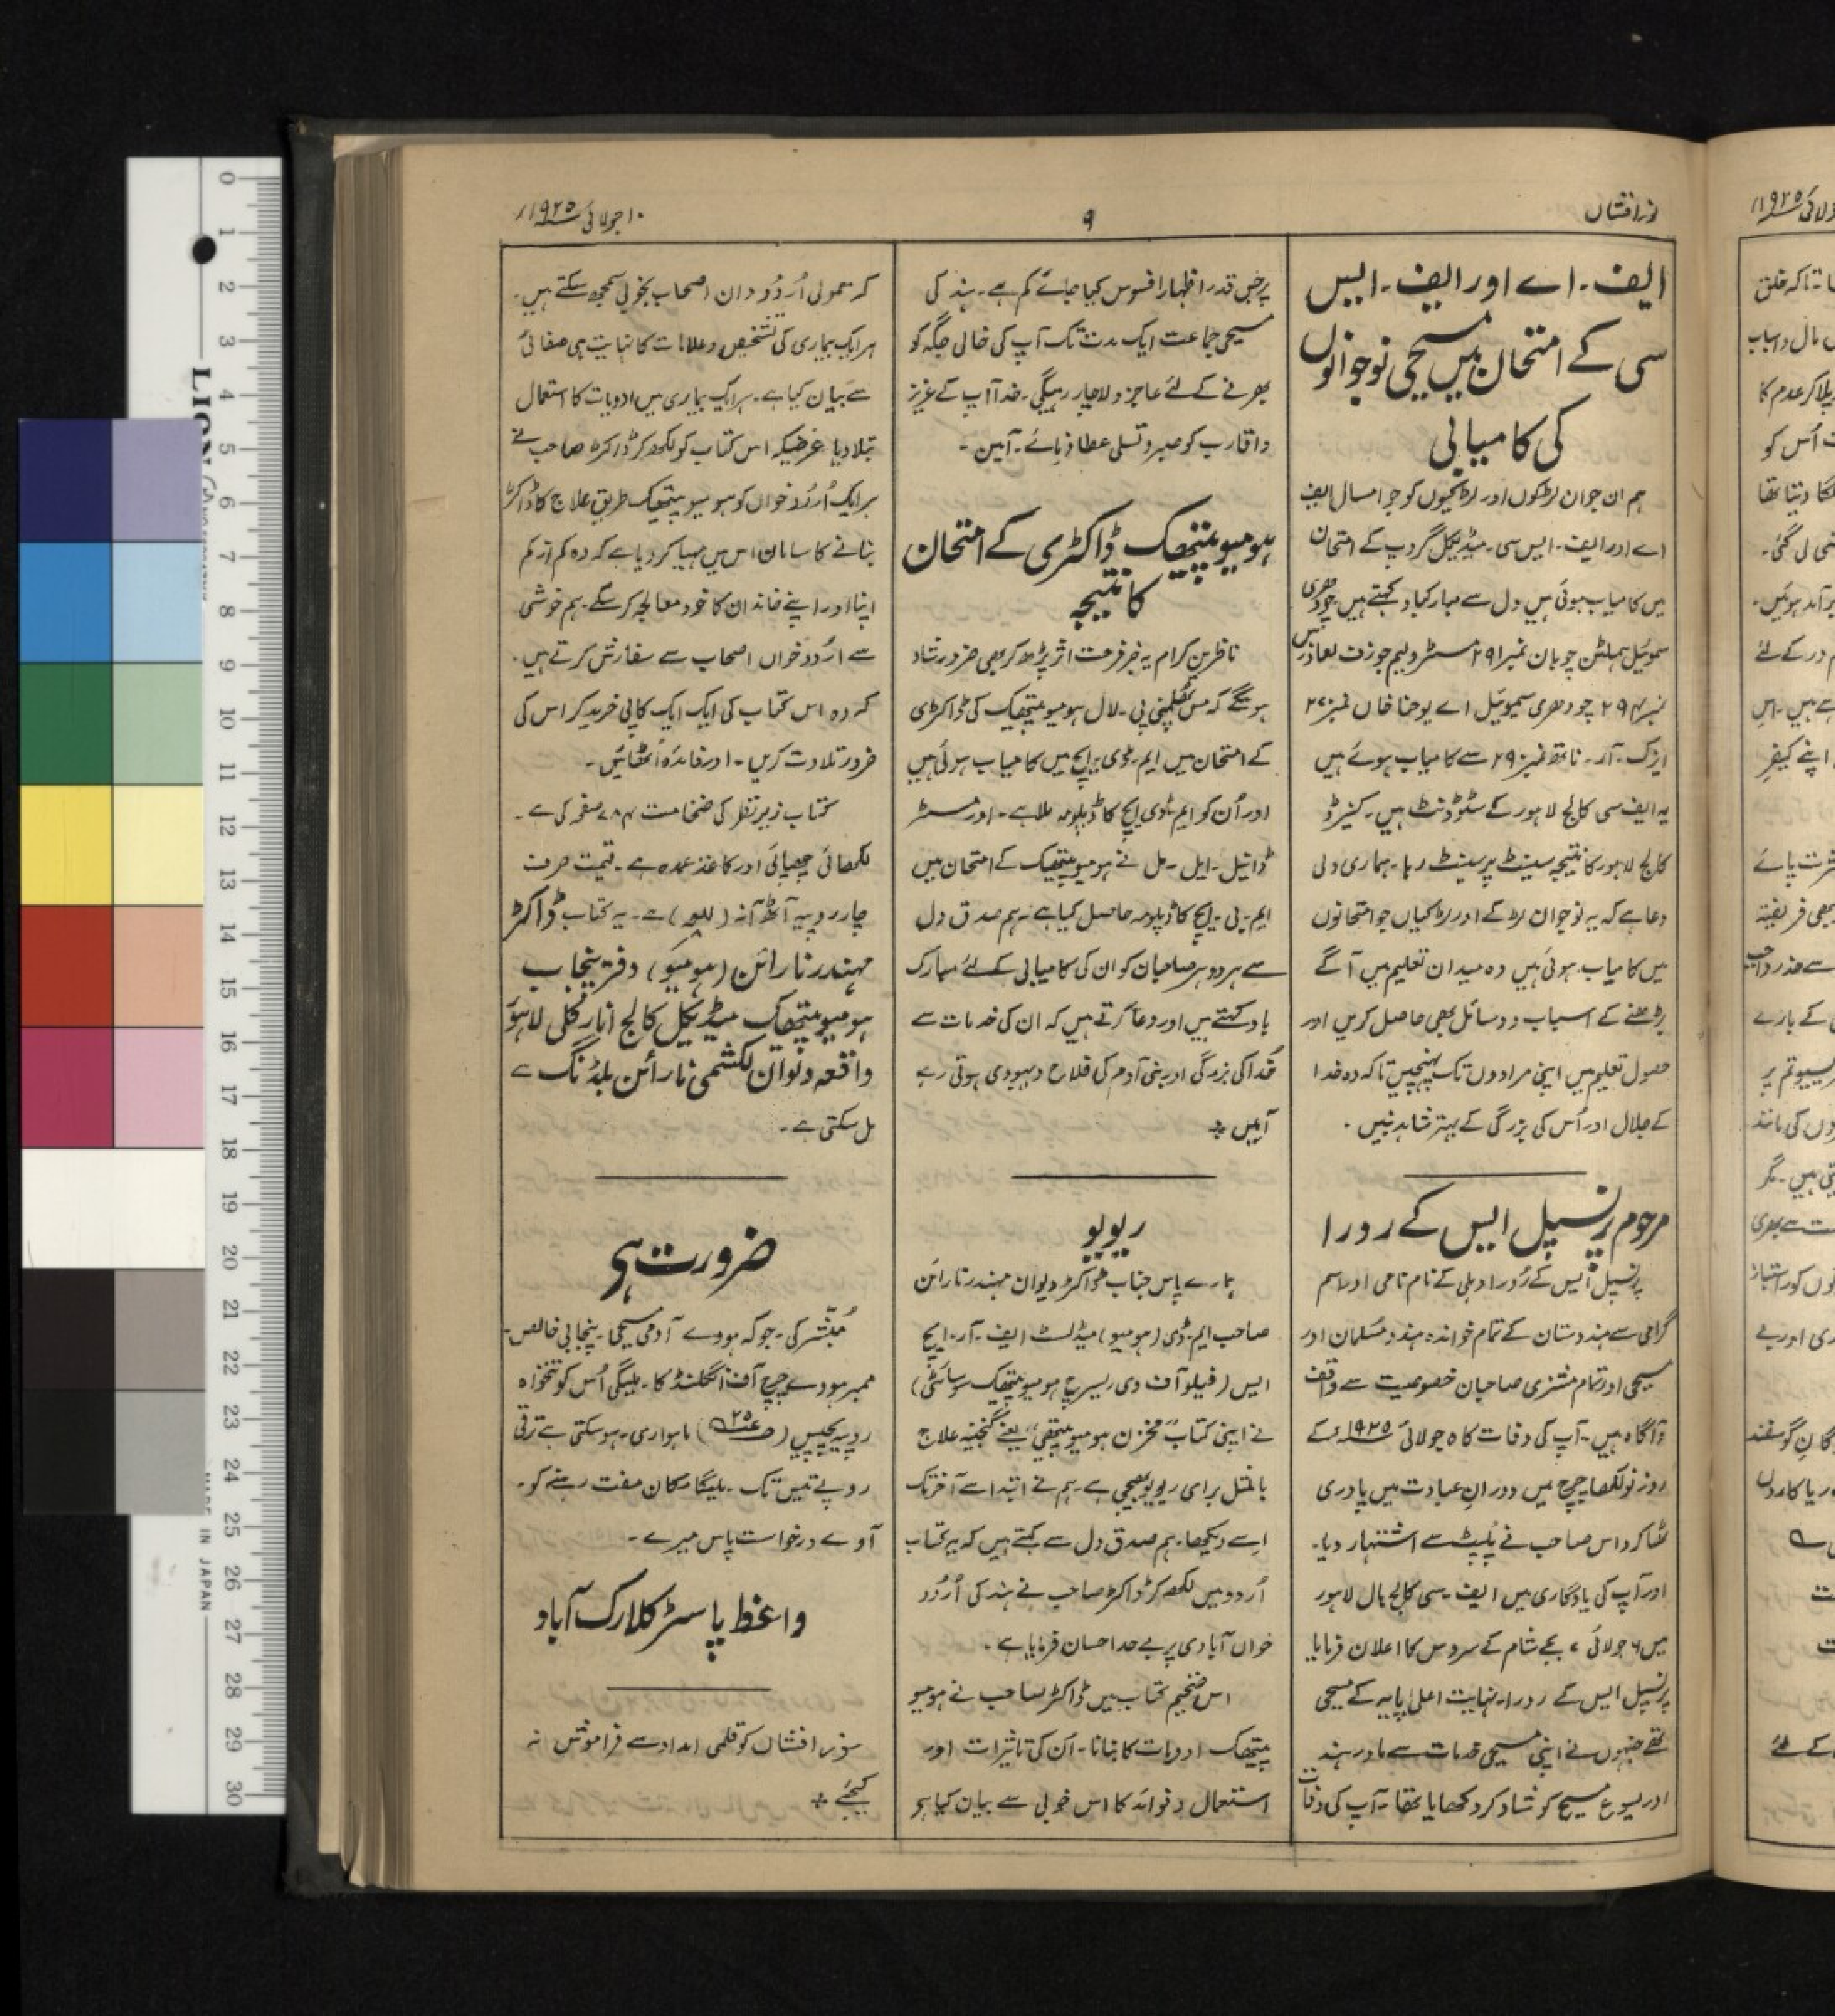 نور افشاں
۹
۱۰ جولائی ۱۹۲۵ء
ایف۔اے اور ایف۔ایس
سی کے امتحان میں مسیحی نوجوانوں
کی کامیابی
ہم ان جوان لڑکوں اور لڑکیوں کو جو امسال ایف
اے اور ایف۔ایس سی۔میڈیکل گروپ کے امتحان
میں کامیاب ہوئی ہیں دل سے مبارکباد کہتے ہیں۔چودھری
سموئیل ہملٹن چوہان نمبر ۲۹۱ مسٹر ولیم جوزف
نمبر ۲۹۴ چودھری سیموئیل اے یوحنا خاں نمبر ۲۷۰
ایزک۔آر۔ناتھ نمبر ۲۹۰ سے کامیاب ہوئے ہیں
یہ ایف سی کالج لاہور کے سٹوڈنٹ ہیں۔کنیرڈ
کالج لاہور کا نتیجہ سینٹ پر سینٹ رہا۔ہماری دلی
دعا ہے کہ یہ نوجوان لڑکے اور لڑکیاں جو امتحانوں
میں کامیاب ہوئی ہیں وہ میدان تعلیم میں آگے
بڑھنے کے اسباب و وسائل بھی حاصل کریں اور
حصول تعلیم میں اپنی مرادوں تک پہنچیں تاکہ وہ خدا
کے جلال اور اُس کی بزرگی کے بہتر شاہد بنیں۔
مرحوم پرنسپل ایس کے رودرا
پرنسپل ایس کے رُودرا دہلی کے نام نامی اور اسم
گرامی سے ہندوستان کے تمام خواندہ ہندو مسلمان اور
مسیحی اور تمام مشنری صاحبان خصوصیت سے واقف
و آگاہ ہیں۔آپ کی وفات کا ۵ جولائی ۱۹۲۵ء کے
روز نولکھا چرچ میں دوران عبادت میں پادری
ٹھاکر داس صاحب نے پلپٹ سے اشتہار دیا۔
اور آپ کی یادگاری میں ایف۔سی کالج ہال لاہور
میں ۶ جولائی ۷ بجے شام کے سروس کا اعلان فرمایا
پرنسپل ایس کے رودرا۔نہایت اعلیٰ پایہ کے مسیحی
تھے جنہوں نے اپنی مسیحی خدمات سے مادر ہند
اور یسوع مسیح کو شاد کر دکھایا تھا۔آپ کی وفات
پر جس قدر اظہار افسوس کیا جائے کم ہے۔ہند کی
مسیحی جماعت ایک مدت تک آپ کی خالی جگہ کو
بھرنے کے لئے عاجز و لاچار رہیگی۔خدا آپ کے عزیز
و اقارب کو صبر و تسلی عطا فرمائے۔آمین۔
ہومیوپیتھک ڈاکٹری کے امتحان
کا نتیجہ
ناظرین کرام یہ خبر فرحت اثر پڑھ کر بھی ضرور شاد
ہونگے کہ مس بی۔لال ہومیوپیتھک کی ڈاکٹری
کے امتحان میں ایم۔ڈی۔ایچ میں کامیاب ہوئی ہیں
اور اُن کو ایم ڈی ایچ کا ڈپلومہ ملا ہے۔اور مسٹر
ڈانیل۔ایل۔مل نے ہومیوپیتھک کے امتحان میں
ایم۔بی۔ایچ کا ڈپلومہ حاصل کیا ہے۔ہم صدق دل
سے ہر دو ہر صاحبان کو ان کی کامیابی کے لئے مبارک
باد کہتے ہیں اور دعا کرتے ہیں کہ ان کی خدمات سے
خُدا کی بزرگی اور بنی آدم کی فلاح و بہبودی ہوتی رہے
آمین ٭
ریویو
ہمارے پاس جناب ڈاکٹر دیوان مہندر نارائن
صاحب ایم۔ڈی (ہومیو) میڈلسٹ ایف۔آر۔ایچ
ایس (فیلو آف دی ریسرچ ہومیوپیتھک سوسائٹی)
نے اپنی کتاب "مخزن ہومیوپیتھی" یعنے گنجینہ علاج
بالمثل برای ریویو بھیجی ہے۔ہم نے ابتدا سے آخر تک
اِسے دیکھا۔ہم صدق دل سے کہتے ہیں کہ یہ کتاب
اُردو میں لکھ کر ڈاکٹر صاحب نے ہند کی اُردو
خواں آبادی پر بے حد احسان فرمایا ہے۔
اس ضخیم کتاب میں ڈاکٹر صاحب نے ہومیو
پیتھک ادویات کا بنانا۔اُن کی تاثیرات اور
استعمال و فوائد کا اس خوبی سے بیان کیا ہے
کہ معمولی اُردو دان اصحاب بخوبی سمجھ سکتے ہیں۔
ہر ایک بیماری کی تشخیص و علامات کا نہایت ہی صفائی
سے بیان کیا ہے۔ہر ایک بیماری میں ادویات کا استعمال
بتلا دیا غرضیکہ اس کتاب کو لکھ کر ڈاکٹر صاحب نے
ہر ایک اُردو خواں کو ہومیوپیتھک طریق علاج کا ڈاکٹر
بنانے کا سامان اس میں مہیا کر دیا ہے کہ وہ کم از کم
اپنا اور اپنے خاندان کا خود معالجہ کر سکے۔ہم خوشی
سے اردو خواں اصحاب سے سفارش کرتے ہیں۔
کہ وہ اس کتاب کی ایک ایک کاپی خرید کر اس کی
ضرور تلاوت کریں۔اور فائدہ اُٹھائیں۔
کتاب زیر نظر کی ضخامت ۷۸۴ صفحہ کی ہے۔
لکھائی چھپائی اور کاغذ عمدہ ہے۔قیمت صرف
چار روپیہ آٹھ آنہ ہے۔یہ کتاب ڈاکٹر
مہندر نارائن (ہومیو) دفتر پنجاب
ہومیوپیتھک میڈیکل کالج انارکلی لاہور
واقعہ دیوان لکشمی نارائن بلڈنگ سے
مل سکتی ہے۔
ضرورت ہی
مُبشّر کی۔جو کہ ہووے آدمی مسیحی۔پنجابی خالص۔
ممبر ہووے چرچ آف انگلنڈ کا۔ملیگی اُس کو تنخواہ
روپیہ پچیس ماہواری۔ہو سکتی ہے ترقی
روپے تیس تک۔ملیگا مکان مفت رہنے کو۔
آوے درخواست پاس میرے۔
واعظ پاسٹر کلارک آباد
نور افشاں کو قلمی امداد سے فراموش نہ
کیجئے ٭
LION
MADE IN JAPAN
0 1 2 3 4 5 6 7 8 9 10 11 12 13 14 15 16 17 18 19 20 21 22 23 24 25 26 27 28 29 30